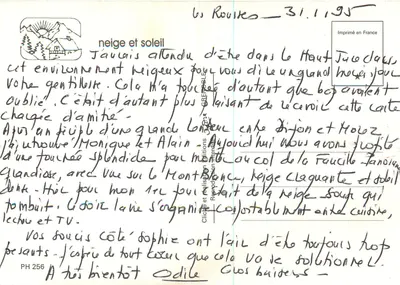 Les Rousses - 31.1.95
Imprimé en France
neige et soleil
J'avais attendu d'être dans le Haut Jura dans
cet environnement neigeux pour vous dire un grand merci pour
votre gentillesse. Cela m'a touchée d'autant que beaucoup avaient
oublié. C'était d'autant plus plaisant de recevoir cette carte
chargée d'amitié -
Après un périple d'une grande lenteur entre Dijon et Morez
j'ai retrouvé Monique et Alain - Aujourd'hui nous avons profité
d'une tournée splendide par monts au col de la Faucille - panorama
grandiose, avec vue sur le Mont Blanc, neige craquante et soleil
- Hier pour mon 1er jour c'était de la neige qui
tombait. Le soir la vie s'organise confortablement entre cuisine,
lecture et TV -
Vos soucis côté Sophie ont l'air d'être toujours trop
pesants - J'espère de tout cœur que cela va se solutionner
PH 256
A très bientôt Odile Gros baisers -